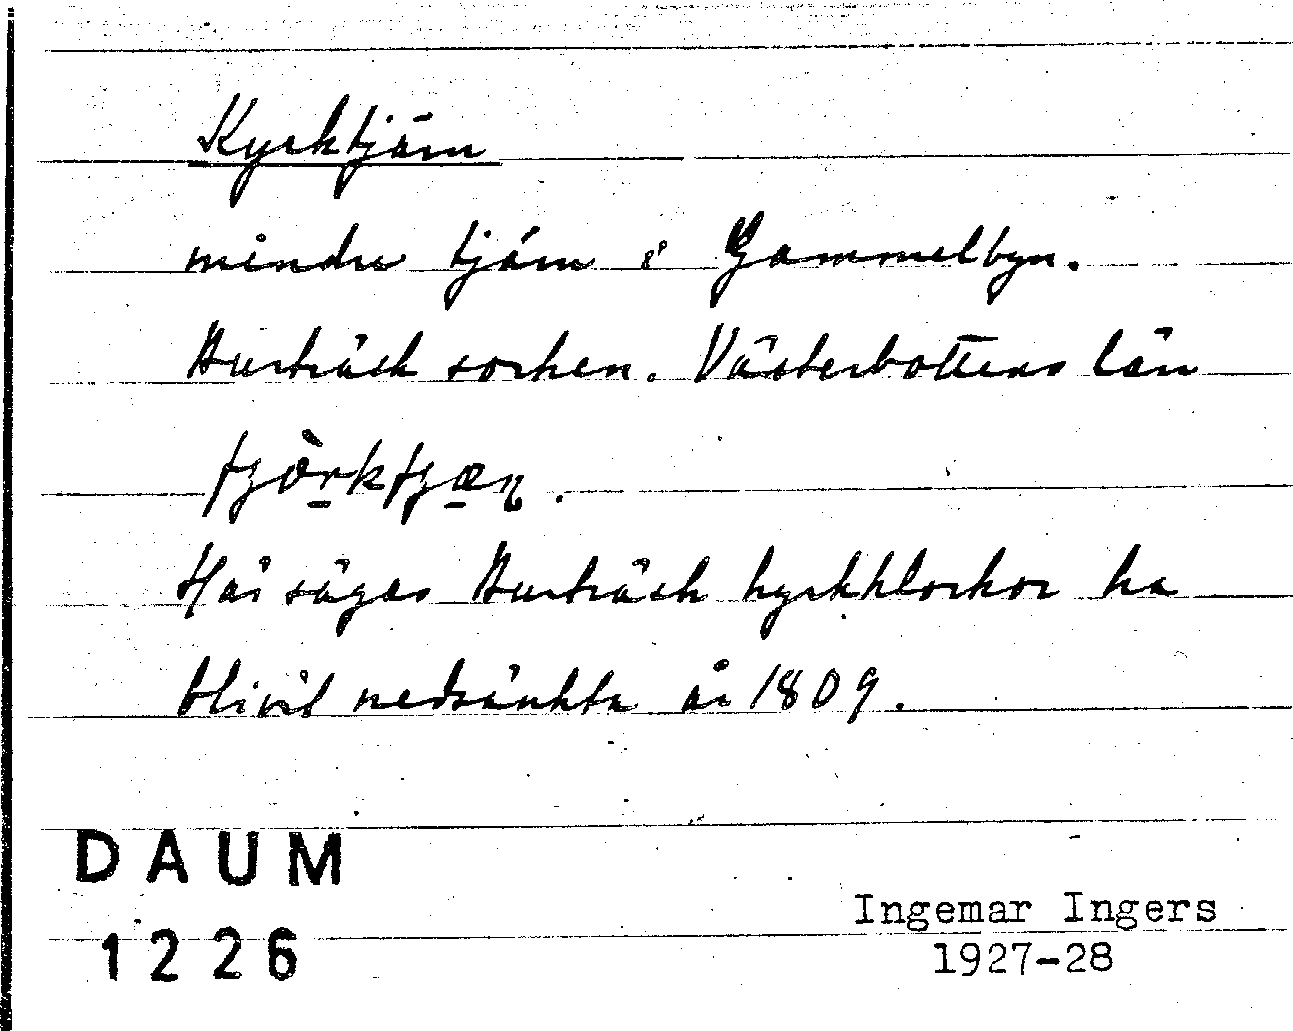 Kyrktjärn
mindre tjärn i Gammelbyn.
Burträsk socken. Västerbottens län
Här sägas Burträsk kyrkklockor ha
blivit nedsänkta år 1809.
DAUM
1226
Ingemar Ingers
1927-28